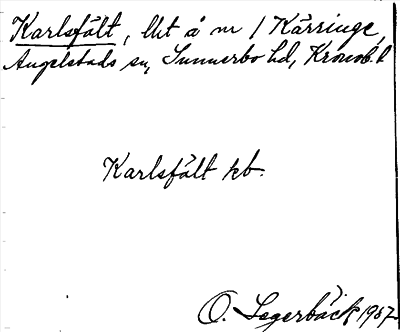 Karlsfält, lht å nr 1 Kärringe,
Angelstads sn, Sunnerbo hd, Kronob. l
Karlsfält kb.
O. Lagerbäck 1937